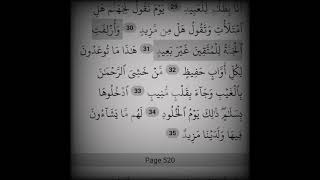 أَنَا۠ بِظَلَّٰمٍ لِّلْعَبِيدِ ٢٩ يَوْمَ نَقُولُ لِجَهَنَّمَ هَلِ
ٱمْتَلَأْتِ وَتَقُولُ هَلْ مِن مَّزِيدٍ ٣٠ وَأُزْلِفَتِ
ٱلْجَنَّةُ لِلْمُتَّقِينَ غَيْرَ بَعِيدٍ ٣١ هَٰذَا مَا تُوعَدُونَ
لِكُلِّ أَوَّابٍ حَفِيظٍ ٣٢ مَّنْ خَشِىَ ٱلرَّحْمَٰنَ
بِٱلْغَيْبِ وَجَآءَ بِقَلْبٍ مُّنِيبٍ ٣٣ ٱدْخُلُوهَا
بِسَلَٰمٍ ذَٰلِكَ يَوْمُ ٱلْخُلُودِ ٣٤ لَهُم مَّا يَشَآءُونَ
فِيهَا وَلَدَيْنَا مَزِيدٌ ٣٥
Page 520